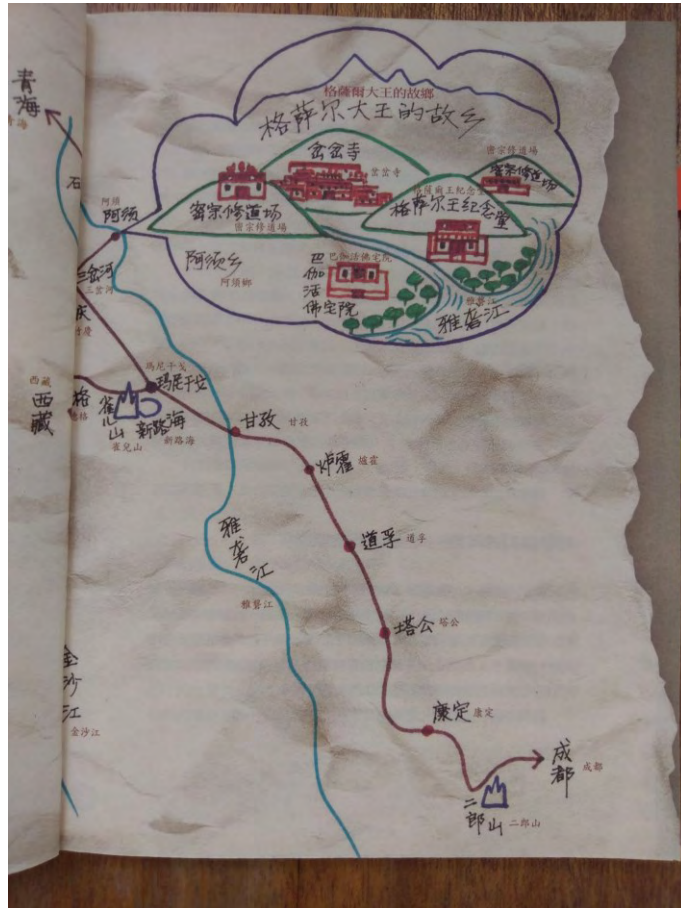 青海
青海
格薩爾大王的故鄉
格萨尔大王的故乡
岔岔寺
岔岔寺
密宗修道场
密宗修道場
密宗修道場
密宗修道场
格薩爾王紀念堂
格萨尔王纪念堂
石
阿須
阿须
阿须乡
阿須鄉
巴伽活佛宅院
巴伽活佛宅院
雅礱江
雅砻江
三岔河
三岔河
庆
竹慶
瑪尼干戈
玛尼干戈
西藏
西藏
格
德格
雀儿山
雀兒山
新路海
新路海
甘孜
甘孜
炉霍
爐霍
道孚
道孚
雅砻江
雅礱江
塔公
塔公
金沙江
金沙江
康定
康定
成都
成都
二郎山
二郎山